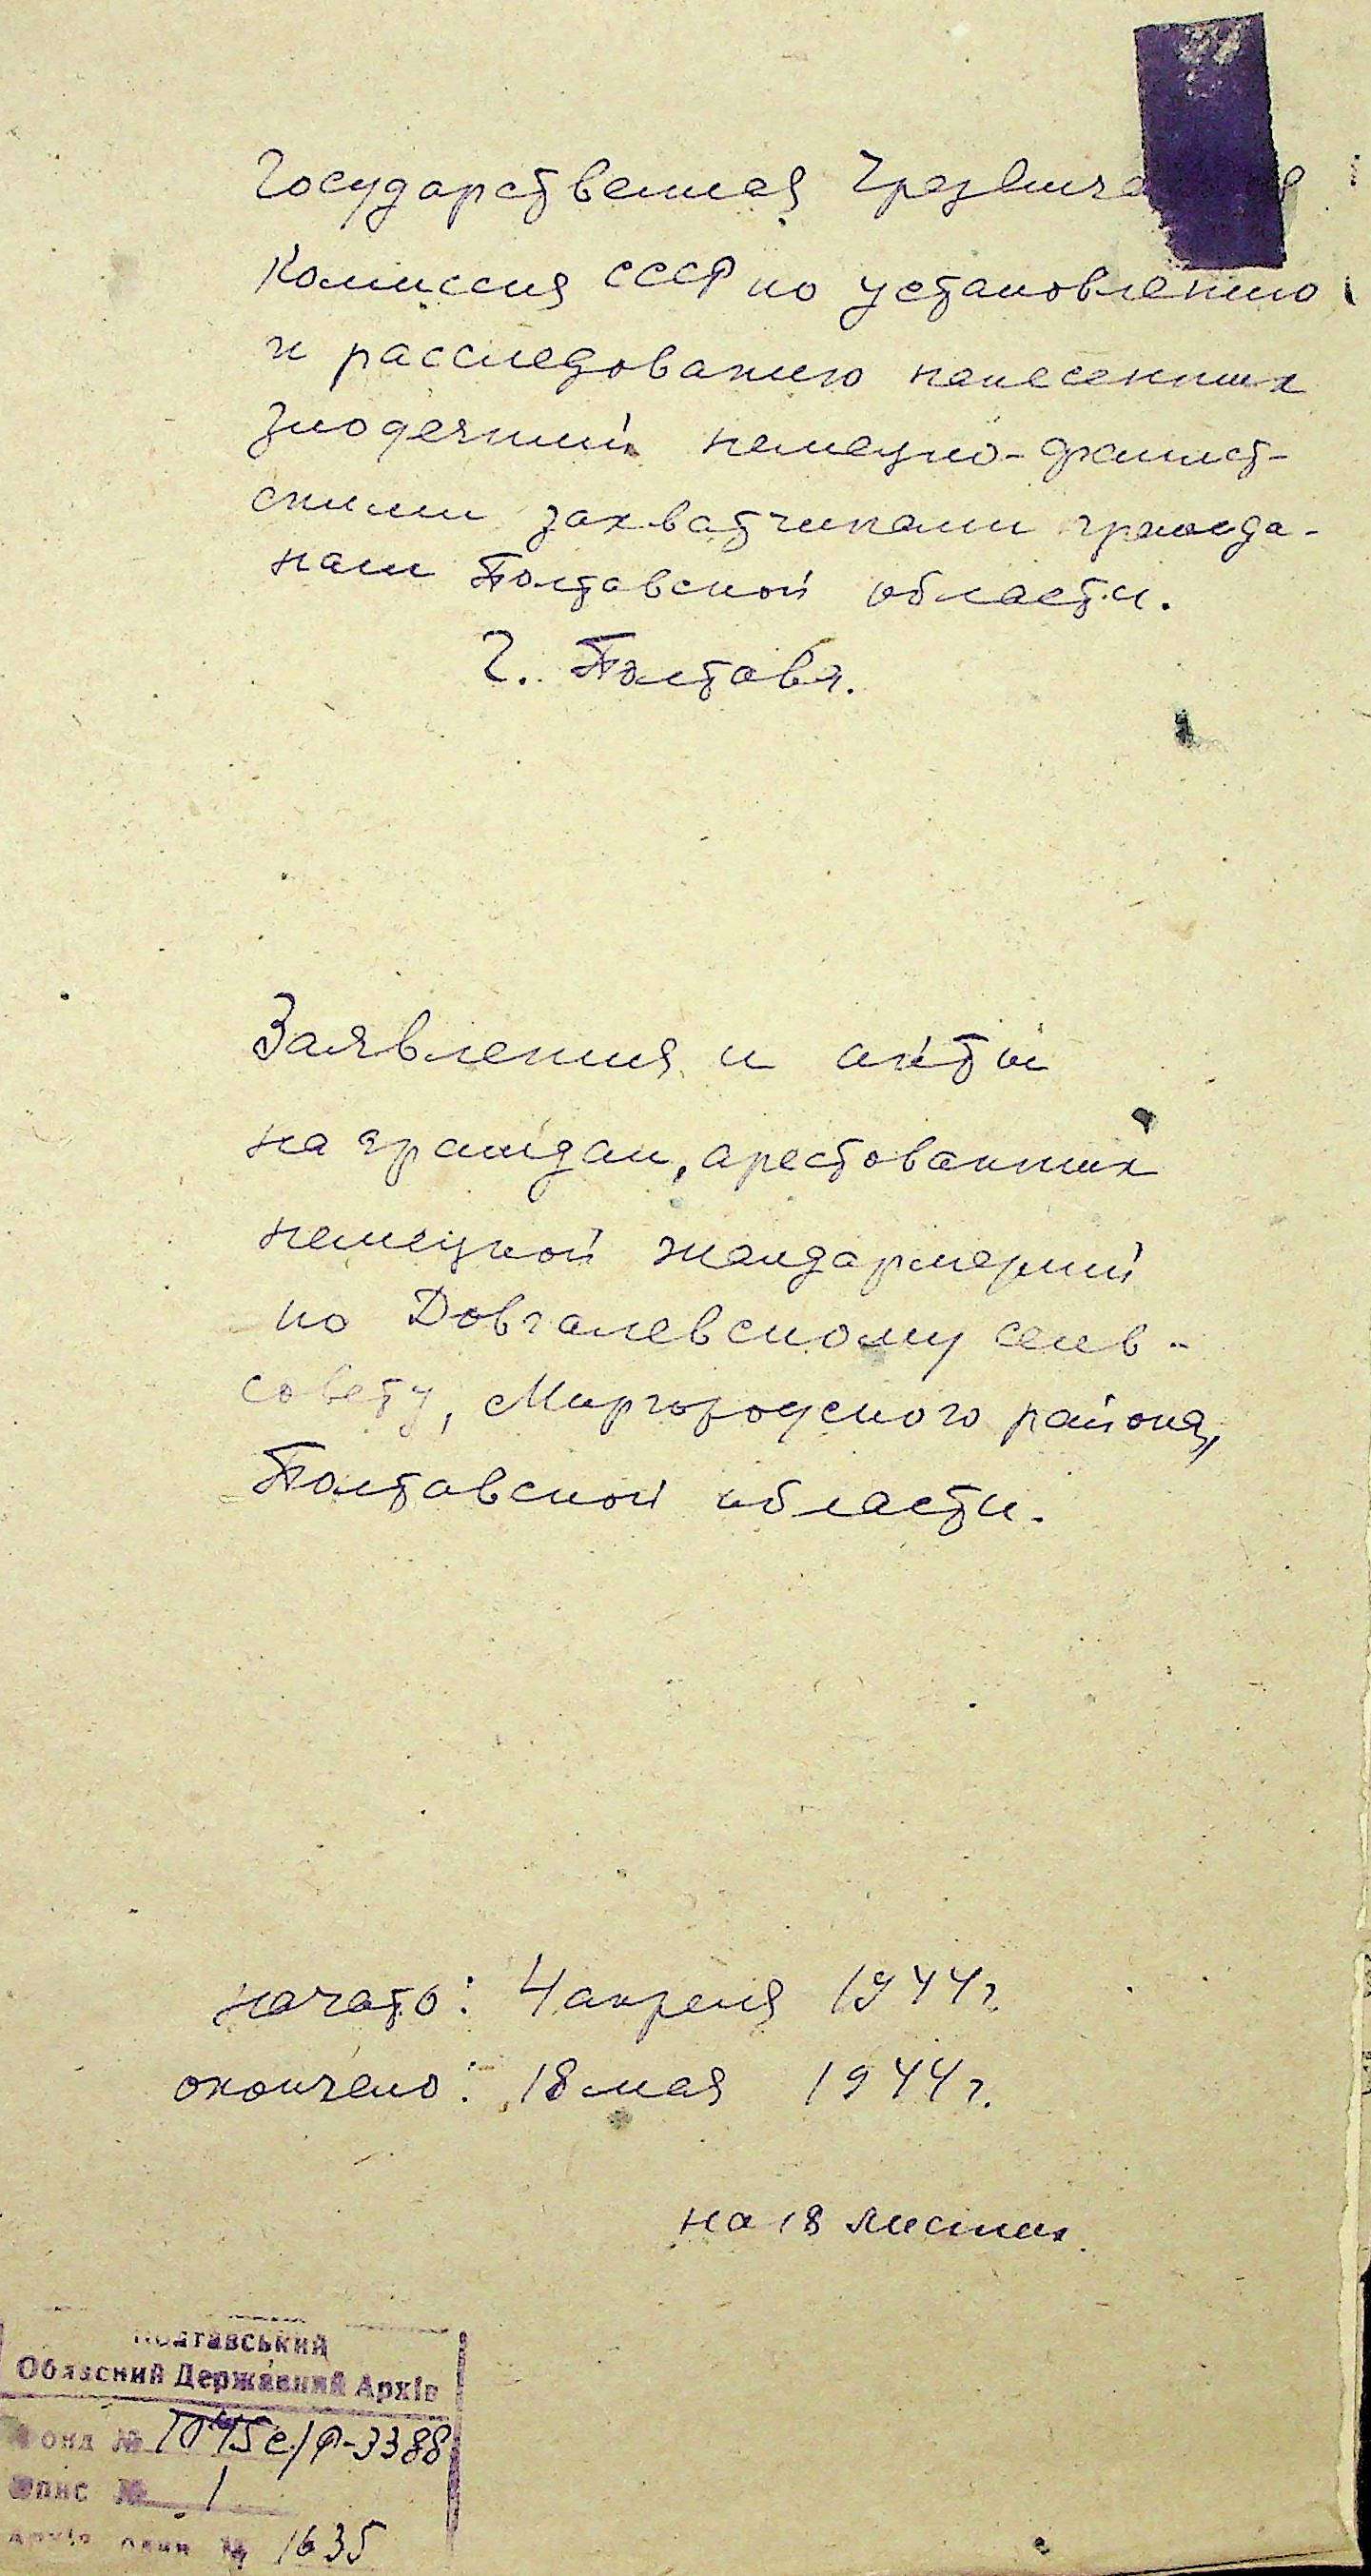 Государственная Чрезвыча
Комиссия СССР по установлению
и расследованию нанесенных
злодеяний немецко-фашист-
скими захватчиками гражда-
нам Полтавской области.
Г. Полтава.
Заявления и акты
на граждан, арестованных
немецкой жандармерий
по Довгалевскому сель-
совету, Миргородского района,
Полтавской области.
начато: 4 апреля 1944 г.
окончено: 18 мая 1944 г.
на 18 листах.
Полтавський
Обласний Державний Архів
Фонд № 1045с/Р-3388
Опис № 1
Архів. один № 1635